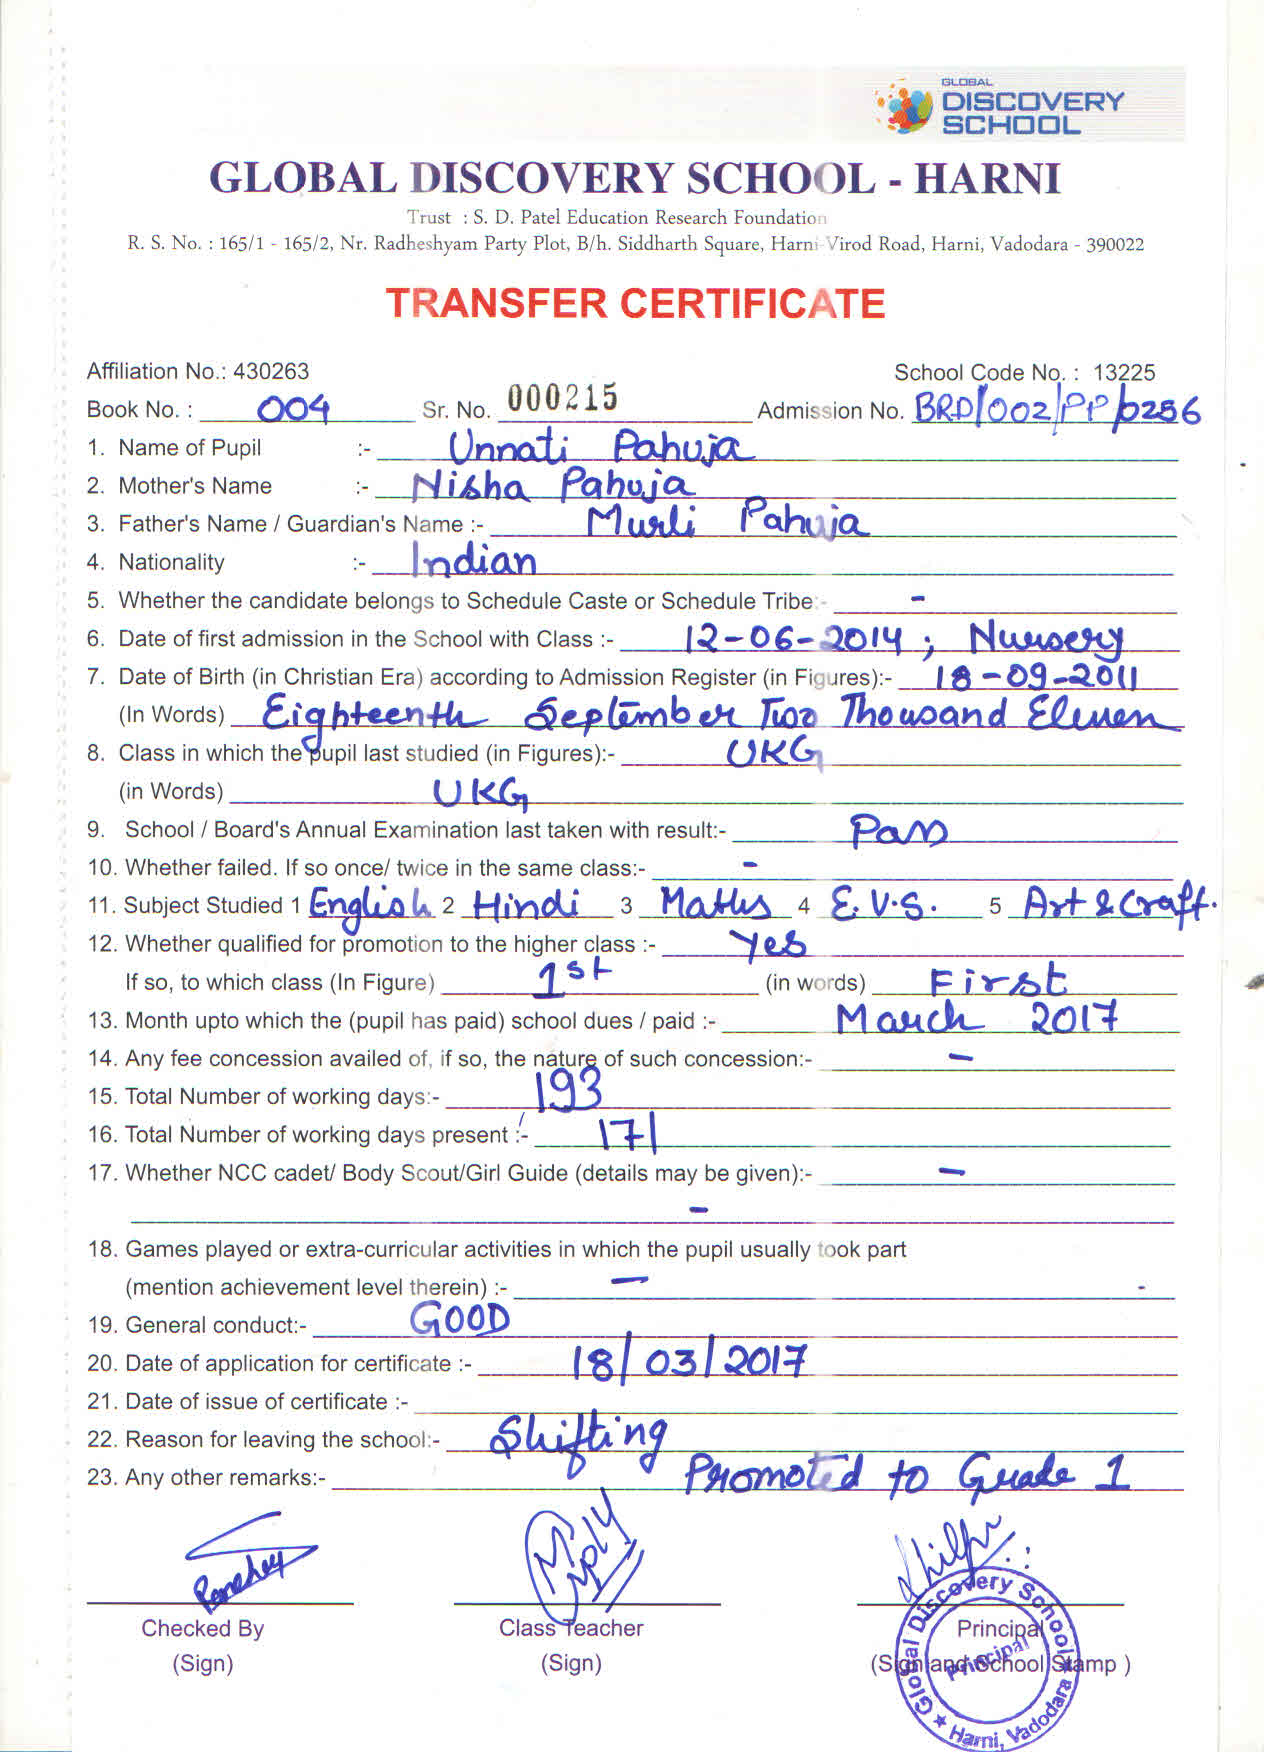 GLOBAL
DISCOVERY
SCHOOL
GLOBAL DISCOVERY SCHOOL - HARNI
Trust : S. D. Patel Education Research Foundation
R. S. No. : 165/1 - 165/2, Nr. Radheshyam Party Plot, B/h. Siddharth Square, Harni-Virod Road, Harni, Vadodara - 390022
TRANSFER CERTIFICATE
Affiliation No.: 430263 School Code No. : 13225
Book No. : 004 Sr. No. 000215 Admission No. BRD/002/PP/0256
1. Name of Pupil :- Unnati Pahuja
2. Mother's Name :- Nisha Pahuja
3. Father's Name / Guardian's Name :- Murli Pahuja
4. Nationality :- Indian
5. Whether the candidate belongs to Schedule Caste or Schedule Tribe:- -
6. Date of first admission in the School with Class :- 12-06-2014 ; Nursery
7. Date of Birth (in Christian Era) according to Admission Register (in Figures):- 18-09-2011
(In Words) Eighteenth September Two Thousand Eleven
8. Class in which the pupil last studied (in Figures):- UKG
(in Words) UKG
9. School / Board's Annual Examination last taken with result:- Pass
10. Whether failed. If so once/ twice in the same class:- -
11. Subject Studied 1 English 2 Hindi 3 Maths 4 E.V.S. 5 Art & Craft.
12. Whether qualified for promotion to the higher class :- Yes
If so, to which class (In Figure) 1st (in words) First
13. Month upto which the (pupil has paid) school dues / paid :- March 2017
14. Any fee concession availed of, if so, the nature of such concession:- -
15. Total Number of working days:- 193
16. Total Number of working days present :- 171
17. Whether NCC cadet/ Body Scout/Girl Guide (details may be given):- -
-
18. Games played or extra-curricular activities in which the pupil usually took part
(mention achievement level therein) :- -
19. General conduct:- GOOD
20. Date of application for certificate :- 18/03/2017
21. Date of issue of certificate :-
22. Reason for leaving the school:- Shifting
23. Any other remarks:- Promoted to Grade 1
Checked By Class Teacher Principal
(Sign) (Sign) (Sign and School Stamp )
Global Discovery School
Principal
Harni, Vadodara